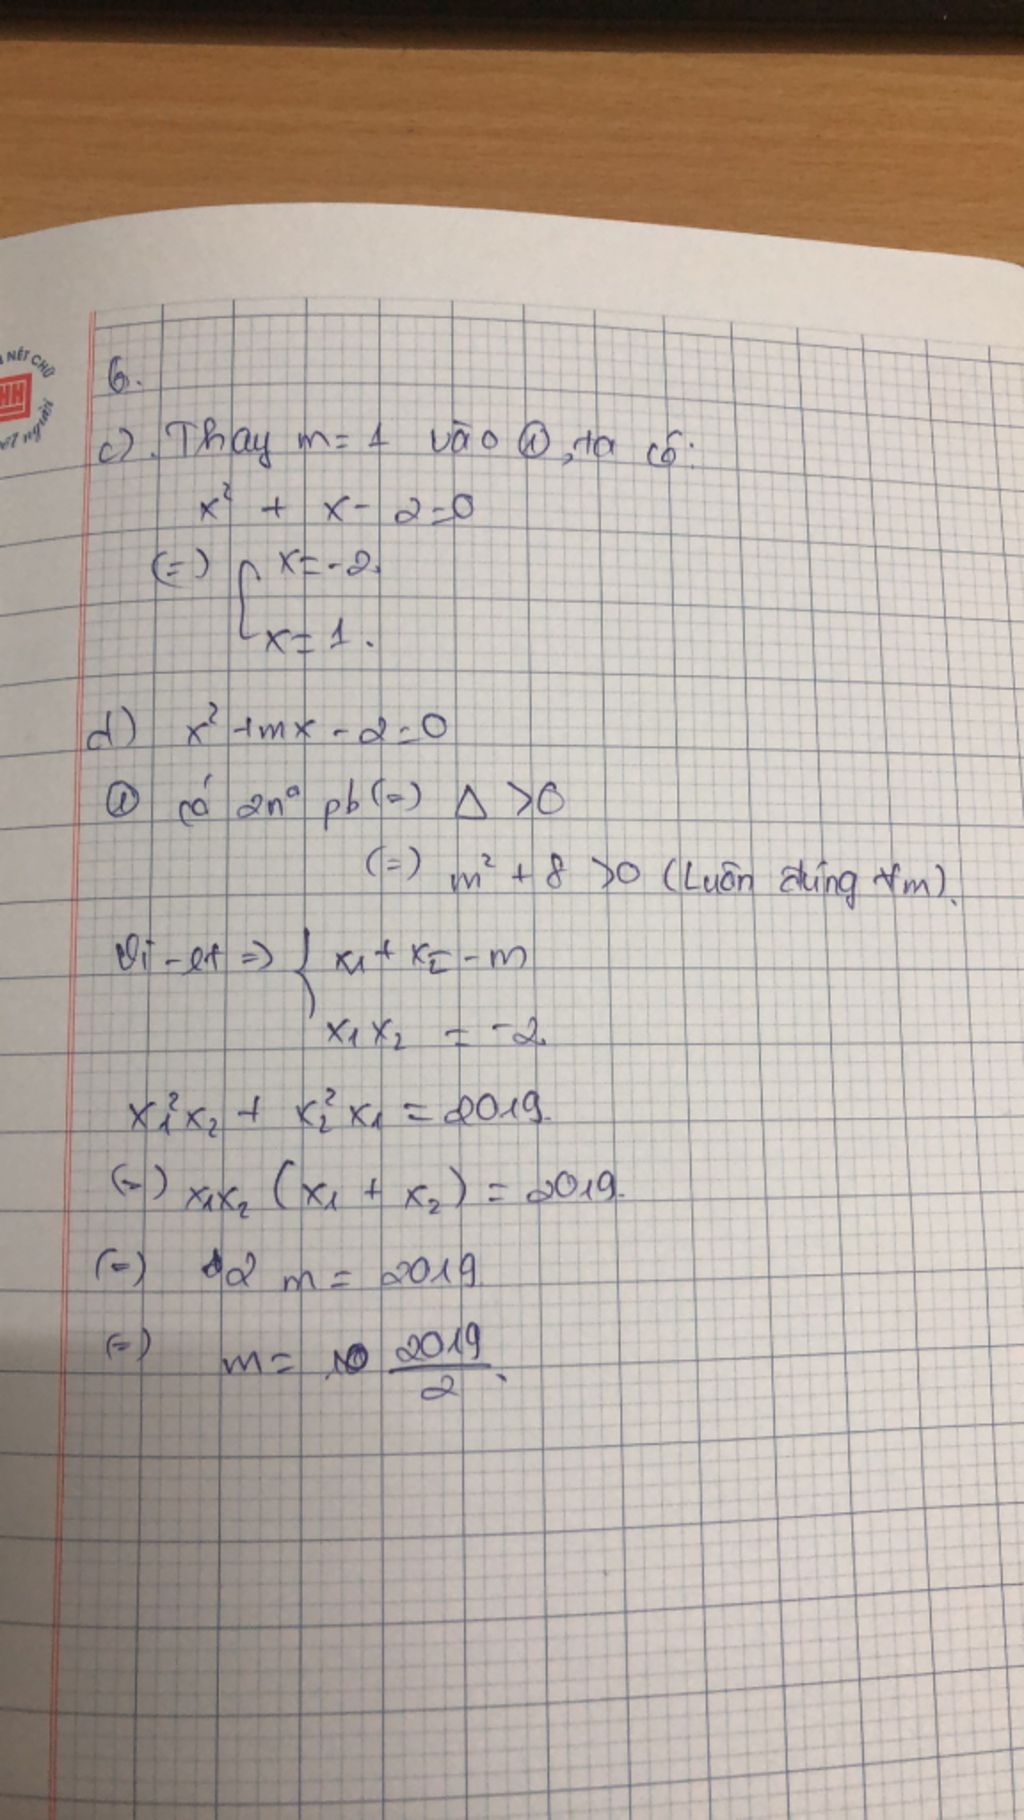 NÉT CHỮ
6.
c). Thay m = 1 vào ①, ta có:
x² + x - 2 = 0
(=) [ x = -2.
x = 1.
d) x² + mx - 2 = 0
① có 2nº pb (=) Δ > 0
(=) m² + 8 > 0 (Luôn đúng ∀m).
Vi-et => { x₁ + x₂ = -m
x₁x₂ = -2
x₁²x₂ + x₂²x₁ = 2019.
(=) x₁x₂ (x₁ + x₂) = 2019.
(=) 2 m = 2019
(=) m = 2019/2.